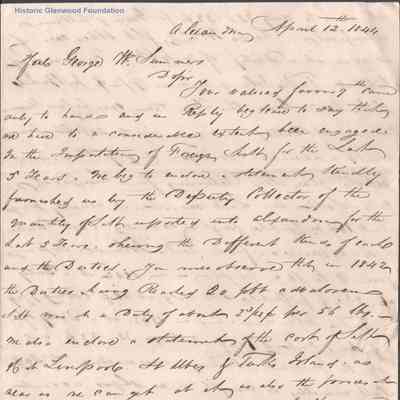 Historic Glenwood Foundation
Alexandria April 12th 1844
Honble George W. Summers
Dear Sir
Your valued favor of 9th came
only to hand and in Reply beg leave to say that
we have to a considerable extent been engaged
in the Importation of Foreign Salt for the Last
5 Years. We beg to enclose a statement kindly
furnished us by the Deputy Collector of the
quantity of Salt imported into Alexandria for the
Last 3 Years. shewing the Different kinds of each
and the Duties. You will observe that in 1842
the Duties having Reached 20 pct advalorem
it was a Duty of about per 56 lbs.
we also enclose a statement of the cost of Salt
at Liverpool St Ubes & Turks Island. as
near as we can get at it, as also the prices at